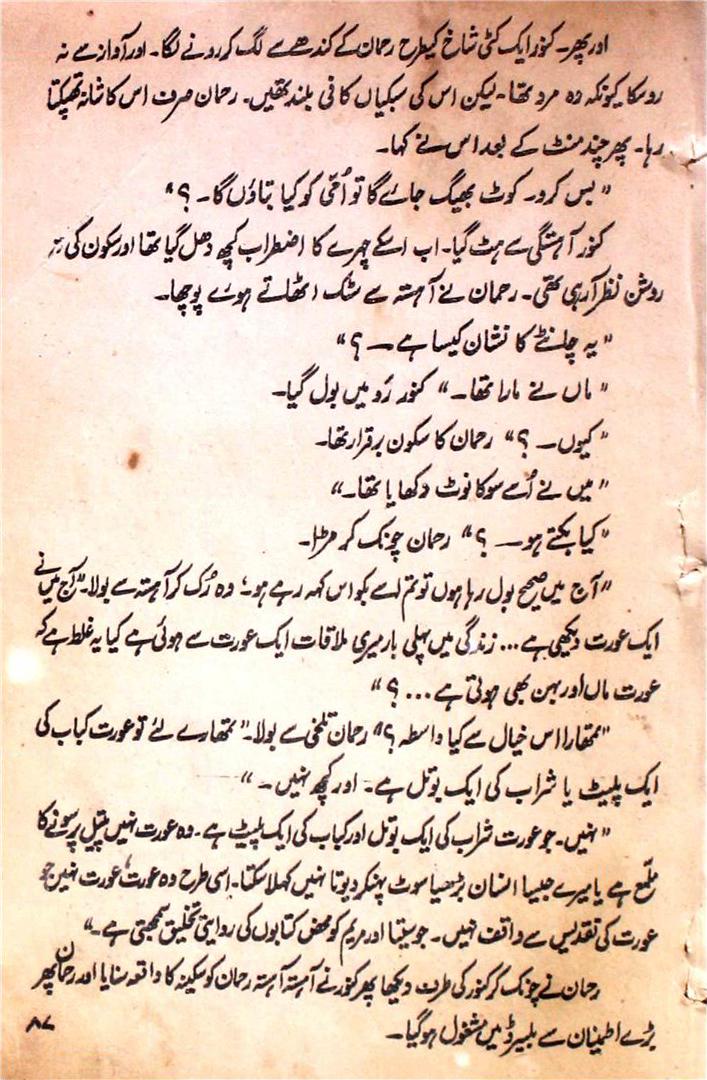 اور پھر۔ کنور ایک کٹی شاخ کیطرح رحمان کے کندھے سے لگ کر رونے لگا۔ اور آواز سے نہ
رو سکا کیونکہ وہ مرد تھا۔ لیکن اس کی سسکیاں کافی بلند تھیں۔ رحمان صرف اس کا شانہ تھپکتا
رہا۔ پھر چند منٹ کے بعد اس نے کہا۔
"بس کرو۔ کوٹ بھیگ جائے گا تو اُمّی کو کیا بتاؤں گا۔ ؟"
کنور آہستگی سے ہٹ گیا۔ اب اسکے چہرے کا اضطراب کچھ دھل گیا تھا اور سکون کی
روشن نظر آرہی تھی۔ رحمان نے آہستہ سے سٹک اٹھاتے ہوئے پوچھا۔
"یہ چانٹے کا نشان کیسا ہے — ؟"
"ماں نے مارا تھا۔" کنور رَو میں بول گیا۔
"کیوں — ؟" رحمان کا سکون برقرار تھا۔
"میں نے اُسے سو کا نوٹ دکھایا تھا۔"
"کیا بکتے ہو — ؟" رحمان چونک کر مڑا۔
"آج میں صحیح بول رہا ہوں تو تم اسے بکواس کہہ رہے ہو۔" وہ رُک کر آہستہ سے بولا۔ "آج میں نے
ایک عورت دیکھی ہے ... زندگی میں پہلی بار میری ملاقات ایک عورت سے ہوئی ہے کیا یہ غلط ہے کہ
عورت ماں اور بہن بھی ہوتی ہے ... ؟"
"تمھارا اس خیال سے کیا واسطہ ؟" رحمان تلخی سے بولا۔ "تمھارے لئے تو عورت کباب کی
ایک پلیٹ یا شراب کی ایک بوتل ہے۔ اور کچھ نہیں۔"
"نہیں۔ جو عورت شراب کی ایک بوتل اور کباب کی ایک پلیٹ ہے۔ وہ عورت نہیں پیتل پر سونے کا
ملمّع ہے یا میرے جیسا انسان بڑھیا سوٹ پہنکر دیوتا نہیں کہلا سکتا۔ اسی طرح وہ عورت، عورت نہیں جو
عورت کی تقدیس سے واقف نہیں۔ جو سیتا اور مریم کو محض کتابوں کی روایتی تخلیق سمجھتی ہے۔"
رحمان نے چونک کر کنور کی طرف دیکھا پھر کنور نے آہستہ آہستہ رحمان کو سکینہ کا واقعہ سنایا اور رحمان پھر
بڑے اطمینان سے بلیرڈ میں مشغول ہو گیا۔
۸۷